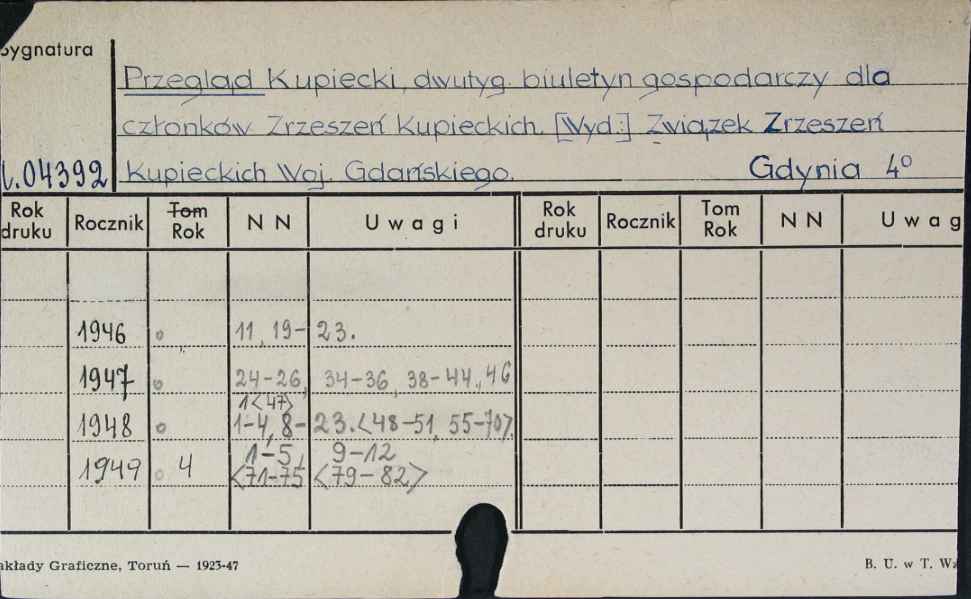 Sygnatura
Przegląd Kupiecki, dwutyg. biuletyn gospodarczy dla
członków Zrzeszeń Kupieckich. [Wyd:] Związek Zrzeszeń
04392 Kupieckich Woj. Gdańskiego. Gdynia 4°
Rok druku Rocznik Tom Rok N N Uwagi Rok druku Rocznik Tom Rok N N Uwag
1946 11, 19-23.
1947 24-26, 34-36, 38-44, 46
1<47>
1948 1-4, 8-23. <48-51, 55-70>.
1-5, 9-12
1949 4 <71-75 <79-82>
akłady Graficzne, Toruń — 1923-47 B. U. w T. W